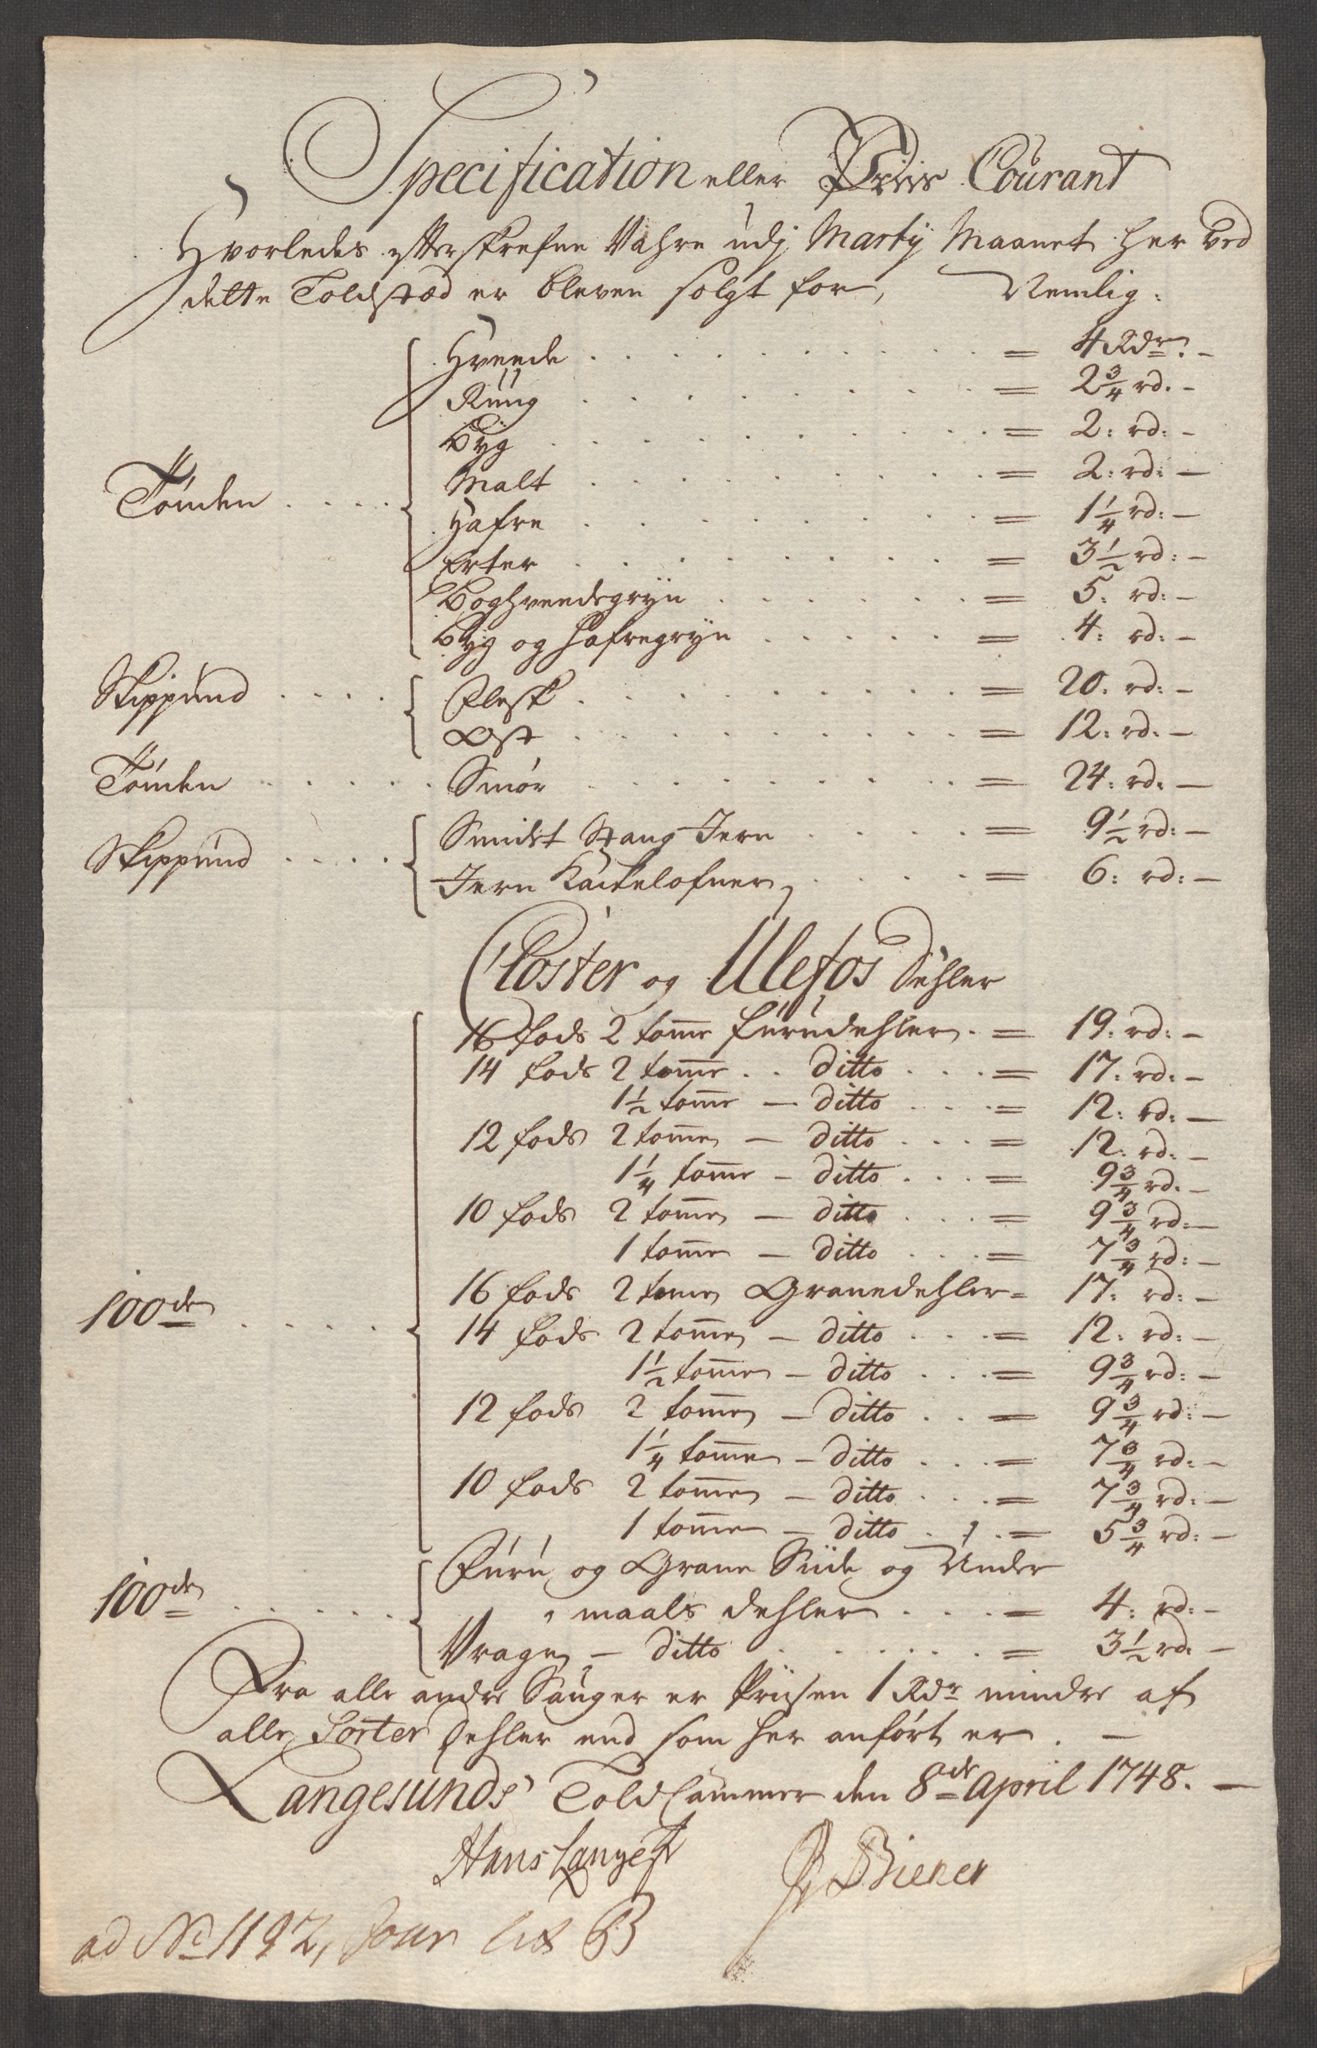 Specification eller Priis Courant
Hvorledes efterskrefne Vahre udj Marty Maanet her ved
dette Toldstæd er bleven solgt for, Nemlig:
Hveede = 4 Rdr: -
Rüüg = 2 3/4 rd. -
Byg = 2: rd: -
Malt = 2: rd: -
Tønden
Hafre = 1 1/4 rd: -
Erter = 3 1/2 rd: -
Boghveedegryn = 5. rd: -
Byg og Hafregryn = 4: rd: -
Skippund
Flesk = 20. rd: -
Ost = 12: rd: -
Tønden Smør = 24: rd: -
Smidet Stang Jern = 9 1/2 rd: -
Skippund
Jern Kackelofner = 6: rd: -
Closter og Ulefos Dehler
16 fods 2 tom̅e fürüdehler = 19. rd: -
14 fods 2 tom̅e ditto = 17: rd: -
1 1/2 tom̅e - ditto = 12: rd: -
12 fods 2 tom̅e - ditto = 12: rd: -
1 1/4 tom̅e - ditto = 9 3/4 rd. -
10 fods 2 tom̅e - ditto = 9 3/4 rd: -
1 tom̅e - ditto = 7 3/4 rd: -
16 fods 2 tome Granedehler = 17: rd: -
100de
14 fods 2 tom̅e - ditto = 12: rd: -
1 1/2 tom̅e - ditto = 9 3/4 rd: -
12 fods 2 tom̅e - ditto = 9 3/4 rd: -
1 1/4 tom̅e - ditto = 7 3/4 rd: -
10 fods 2 tom̅e - ditto = 7 3/4 rd: -
1 tom̅e - ditto = 5 3/4 rd: -
Fürü og Grane Siide og Under
100de
maals dehler = 4: rd: -
Vrage - ditto = 3 1/2 rd: -
Fra alle andre Sauger er Priisen 1 Rdr mindre af
alle Sorter Dehler end som her anført er. -
Langesunds Told Cammer den 8de April 1748. -
Hans Lange Biener
ad No 1192, Jour Lit B